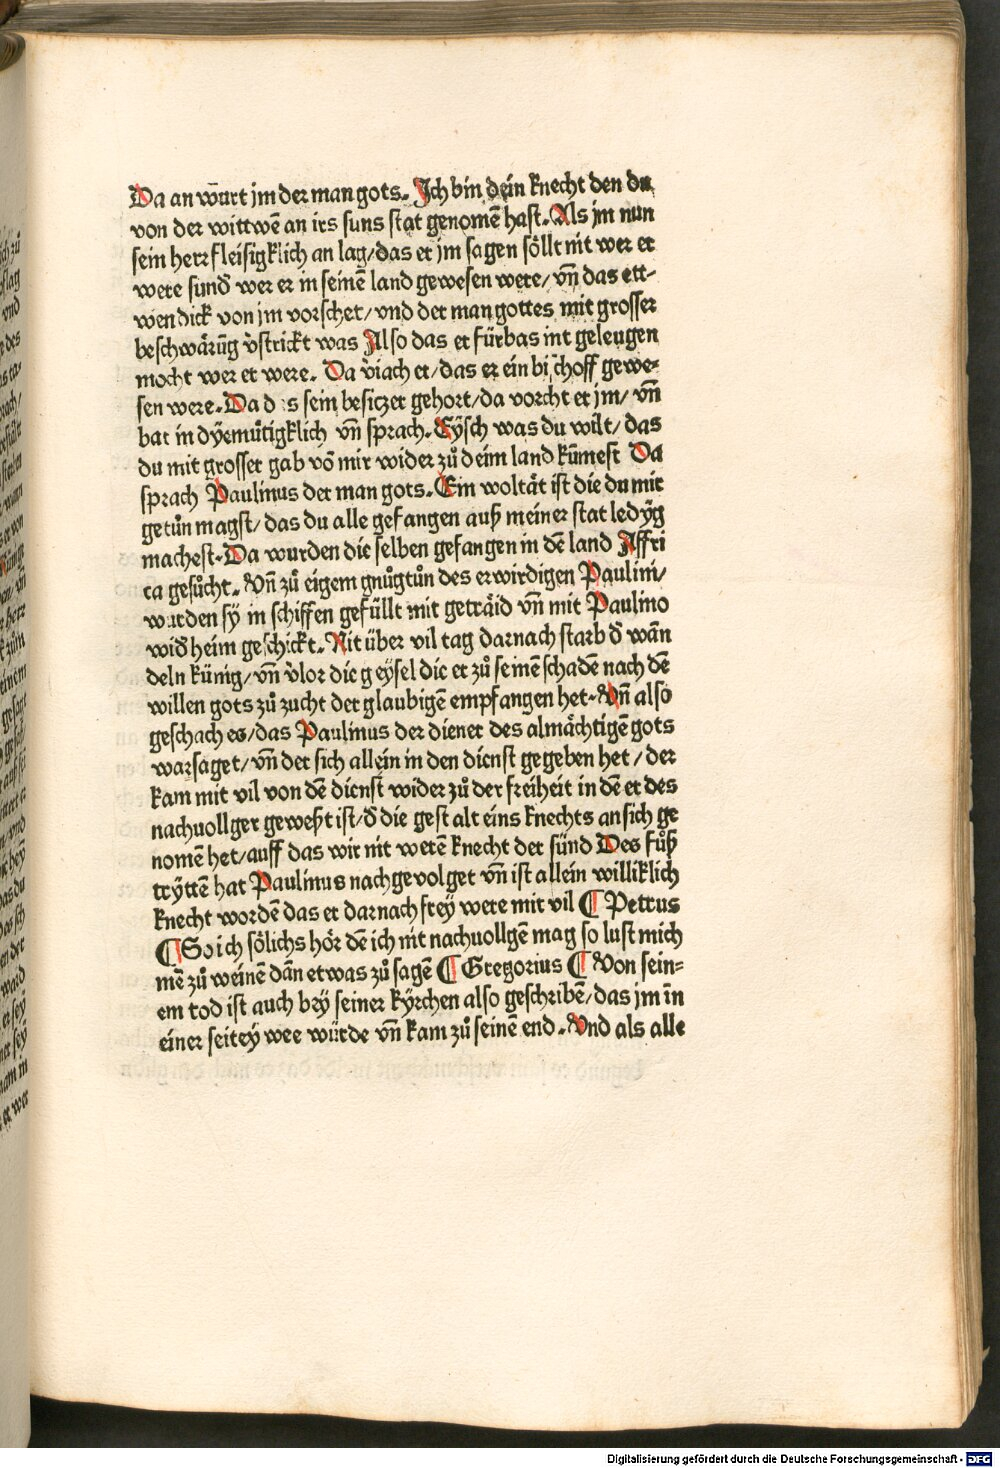 Da an wūrt jm der man gots. Ich bin dein knecht den du
von der wittwē an irs suns stat genomē hast. Als jm nun
sein herr fleisigklich an lag/ das er jm sagen sōllt nit wer er
were sunđ wer er in seinē land gewesen were/ vn̄ das ett-
wen dick von jm vorschet/ vnd der man gottes mit grosser
beschwärūg v̓strickt was Also das er fürbas nit geleugen
mocht wer er were. Da v̓iach er/ das er ein bischoff gewe-
sen were. Da d s sein besitzer gehort/ da vorcht er jm/ vn̄
bat in dÿemuͤtigklich vn̄ sprach. Eÿsch was du wilt/ das
du mit grosser gab vō mir wider zuͦ deim land kūmest Da
sprach Paulinus der man gots. Ein woltät ist die du mir
getuͦn magst/ das du alle gefangen auß meiner stat ledÿg
machest. Da wurden die selben gefangen in dē land Affri
ca gesuͦcht. Vn̄ zuͦ eigem gnuͦgtuͦn des erwirdigen Paulini/
wurden sÿ in schiffen gefüllt mit geträid vn̄ mit Paulino
widheim geschickt. Nit über vil tag darnach starb đ wān
deln künig/ vn̄ v̓lor die geysel die er zuͦ seinem schadē nach dē
willen gots zuͦ zucht der glaubigē empfangen het. Vn̄ also
geschach es/ das Paulinus der diener des almächtigē gots
warsaget/ vn̄ der sich allein in den dienst gegeben het/ der
kam mit vil von dē dienst wider zuͦ der freiheit in dē er des
nachuollger geweßt ist/ đ die gestalt eins knechts an sich ge
nomen het/ auff das wir nit werē knecht der sünd Des fuͦß
trÿttē hat Paulinus nachgevolget vn̄ ist allein williklich
knecht wordē das er darnach frey were mit vil ¶ Petrus
¶ So ich sōlichs hōr dē ich nit nachuollgē mag so lust mich
mē zuͦ weinē dān etwas zuͦ sagē ¶ Gregorius ¶ Von sein=
em tod ist auch bey seiner kÿrchen also geschribē/ das jm in
einer seitey wee würde vn̄ kam zuͦ seinē end. Vnd als alle
Digitalisierung gefördert durch die Deutsche Forschungsgemeinschaft - DFG